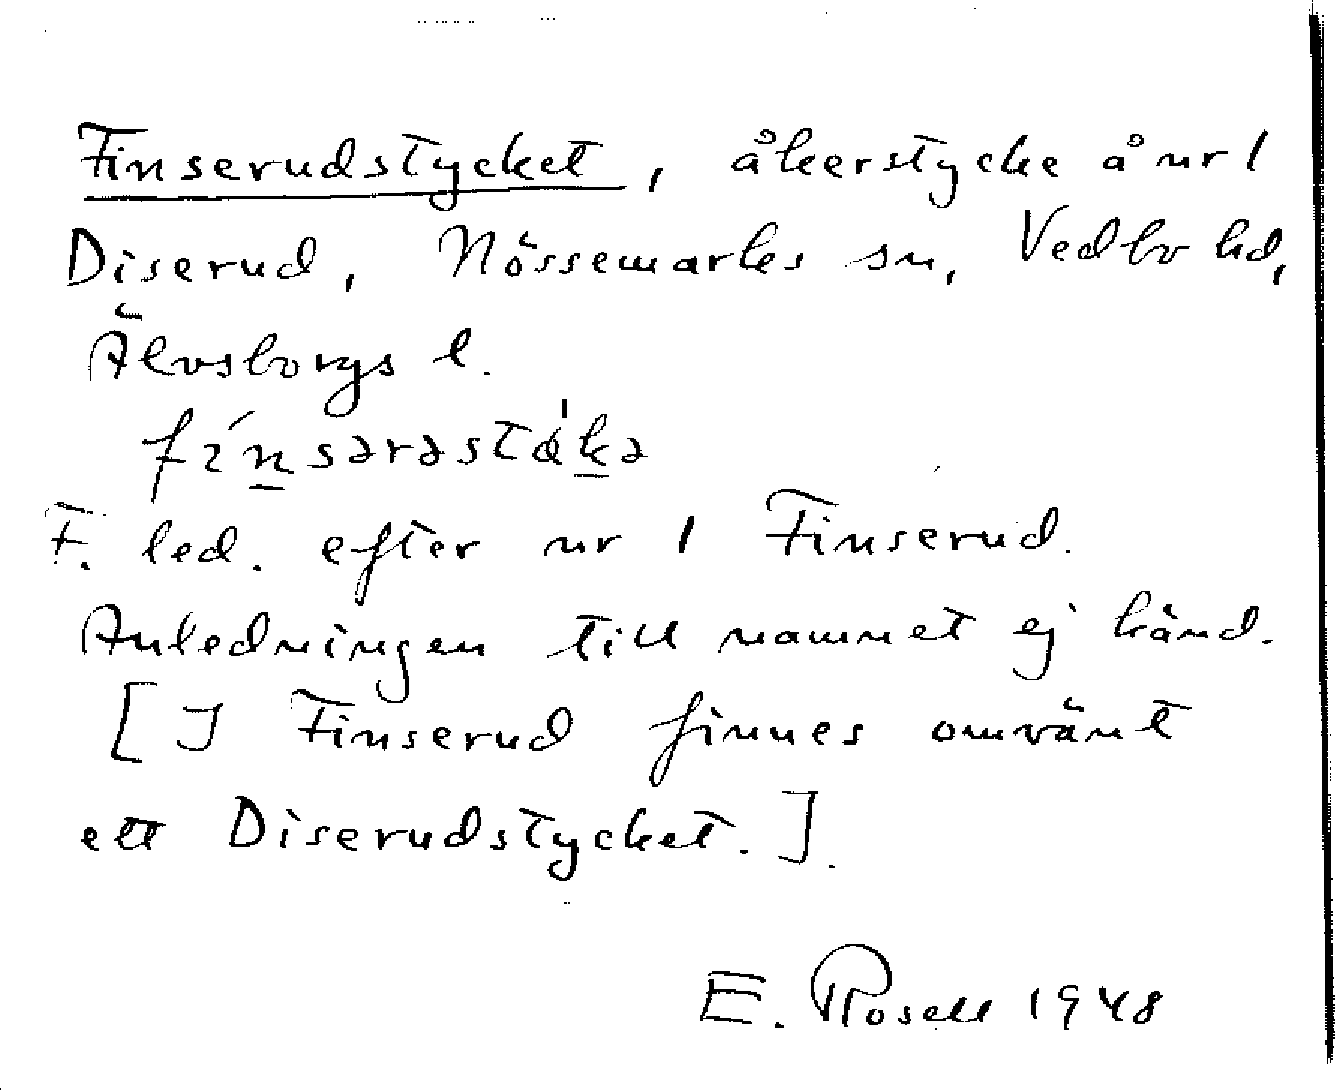 Finserudstycket, åkerstycke å nr 1
Diserud, Nössemarks sn, Vedbo hd,
Älvsborgs l.
F. led. efter nr 1 Finserud.
Anledningen till namnet ej känd.
[I Finserud finnes omvänt
ett Diserudstycket.].
E. Rosell 1948